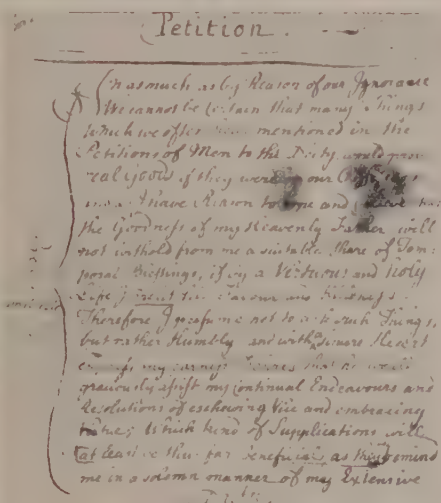 Petition.
Inasmuch as by Reason of our Ignorance
We cannot be Certain that many Things
Which we often mentioned in the
Petitions of Men to the Deity, would prov
real Goods if they were in our
I have Reason to hope and
the Goodness of my Heavenly Father will
not withold from me a suitable share of Tem-
poral Blessings, if by a Virtuous and Holy
Life I
Therefore I presume not to ask such Things,
but rather Humbly and with a sincere Heart
express my earnest Desires that he would
graciously assist my Continual Endeavours and
Resolutions of eschewing Vice and embracing
Virtue; Which kind of Supplications will
at least be thus far beneficial, as they remind
me in a solemn manner of my Extensive
Duty